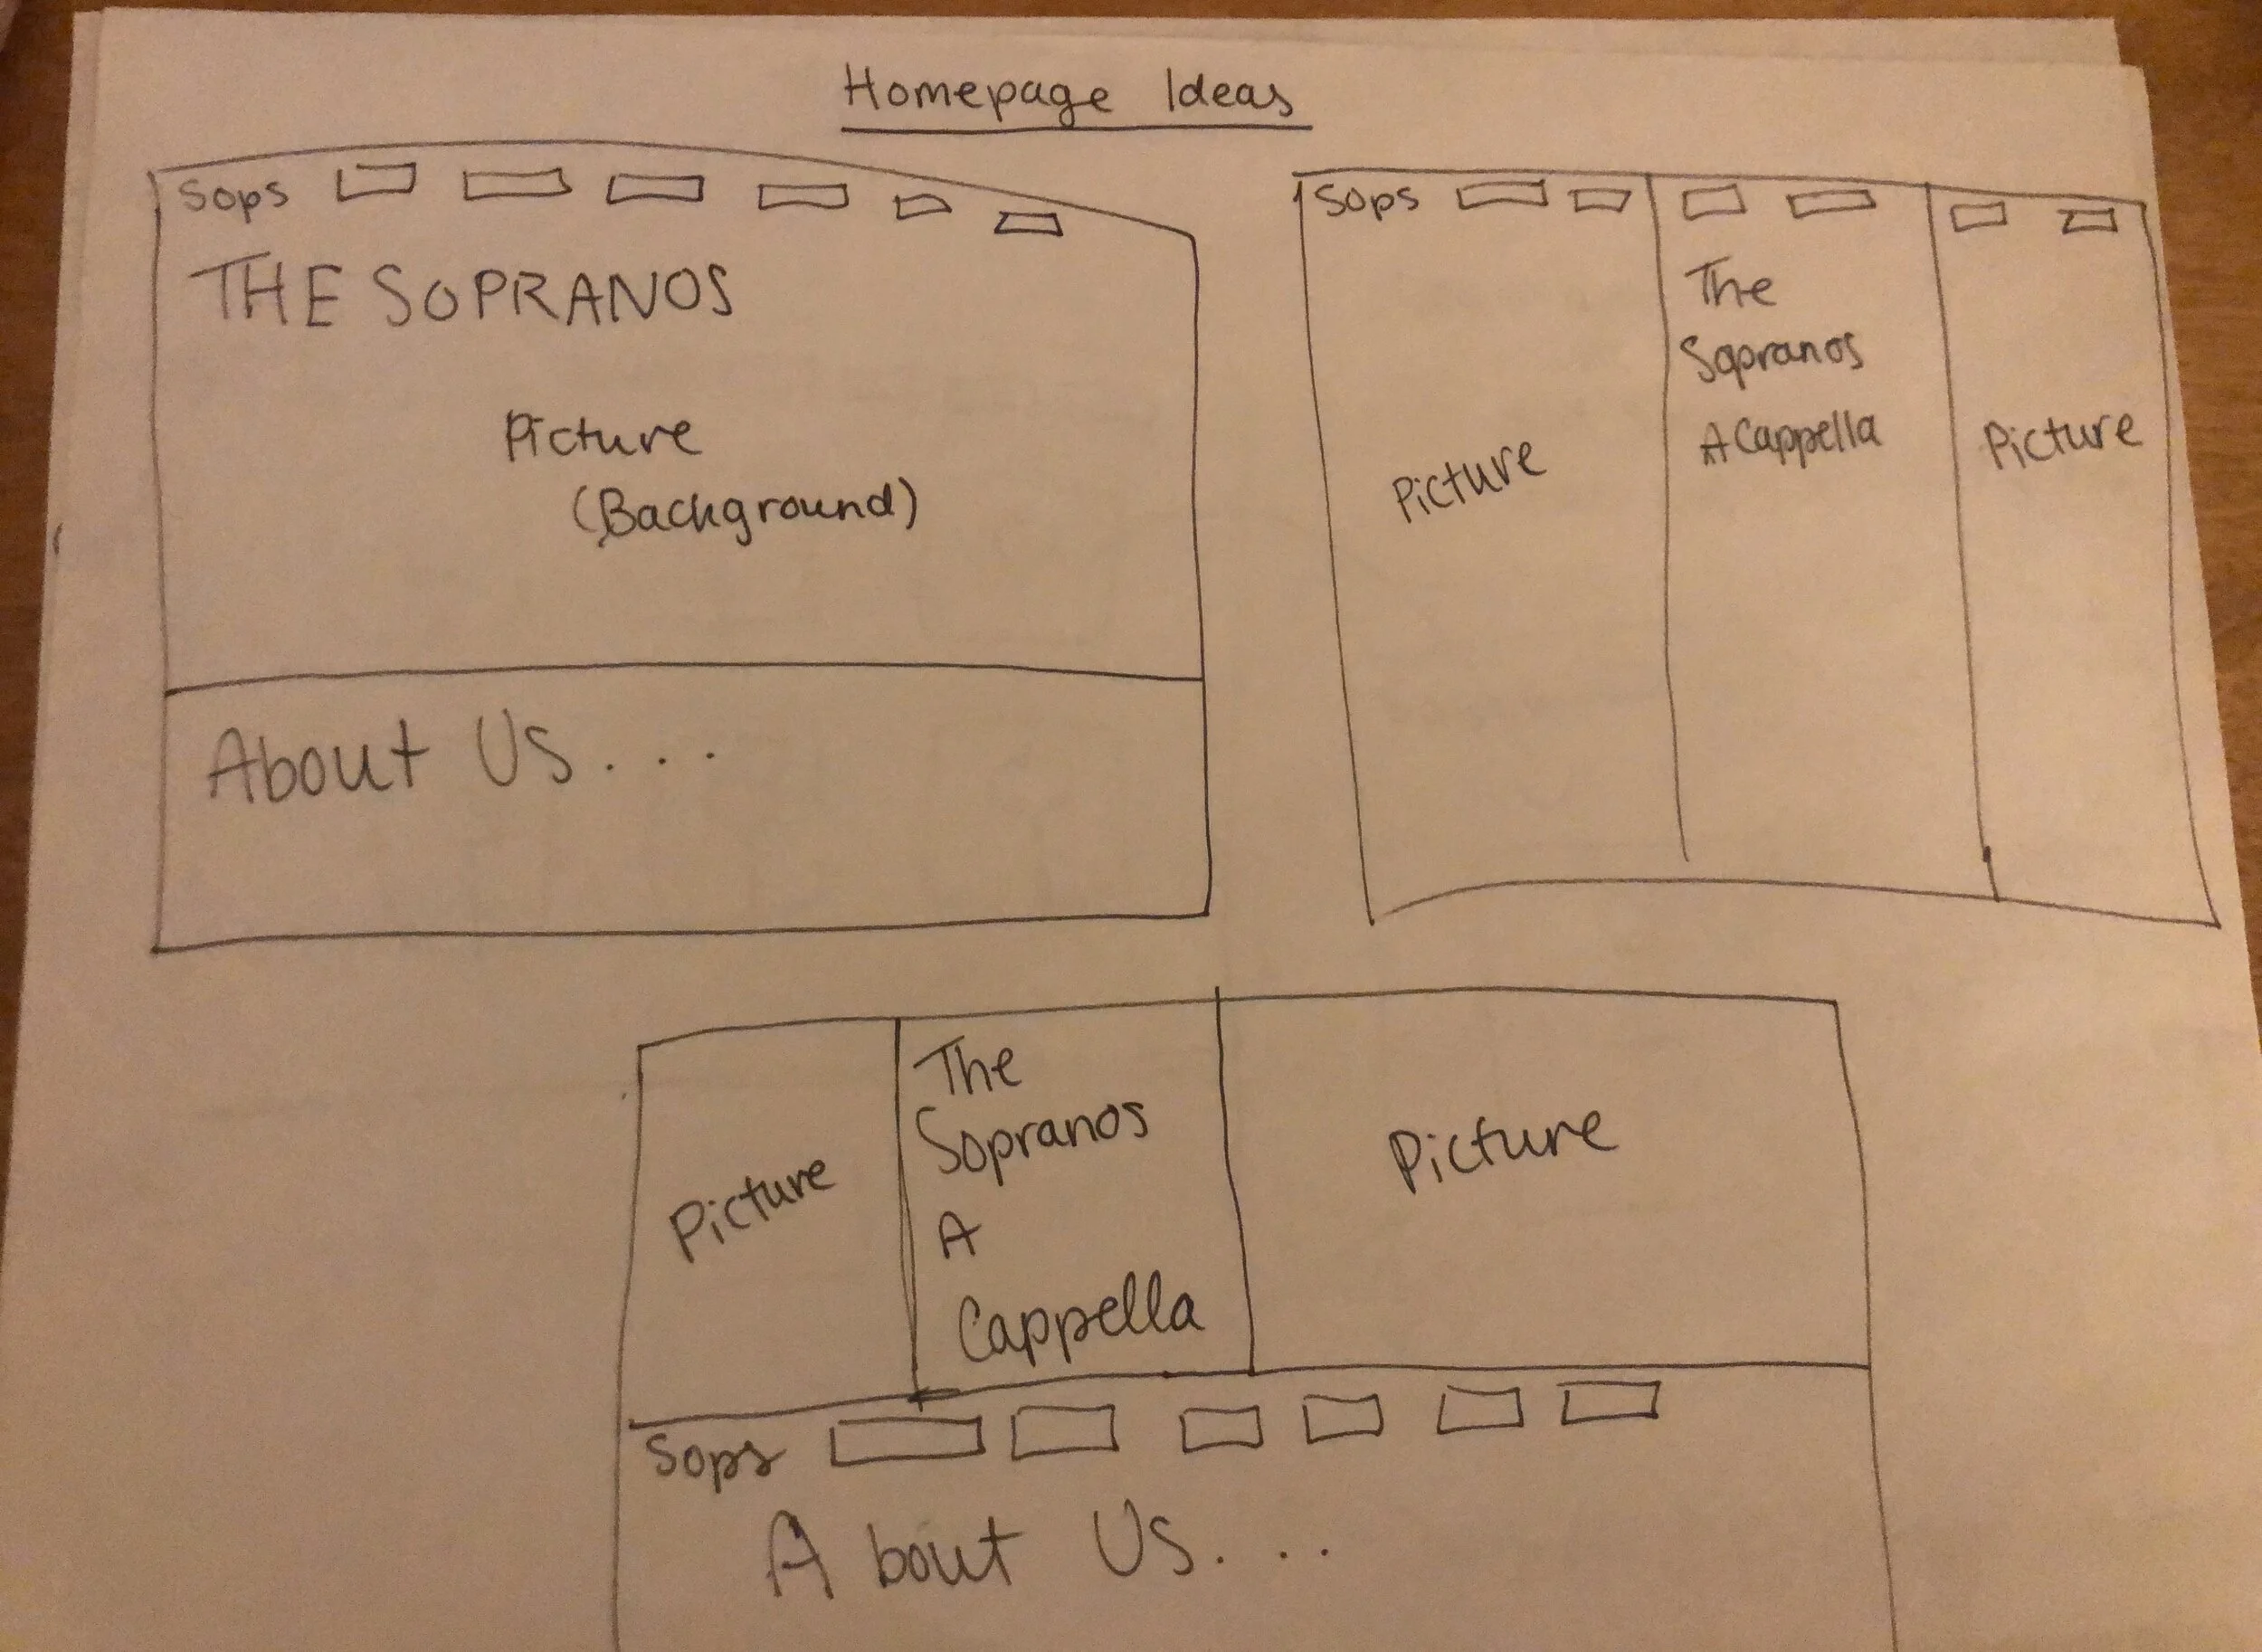 Homepage Ideas
Sops
THE SOPRANOS
Picture
(Background)
About Us...
Sops
Picture
The
Sopranos
A Cappella
Picture
Picture
The
Sopranos
A
Cappella
Picture
Sops
About Us...